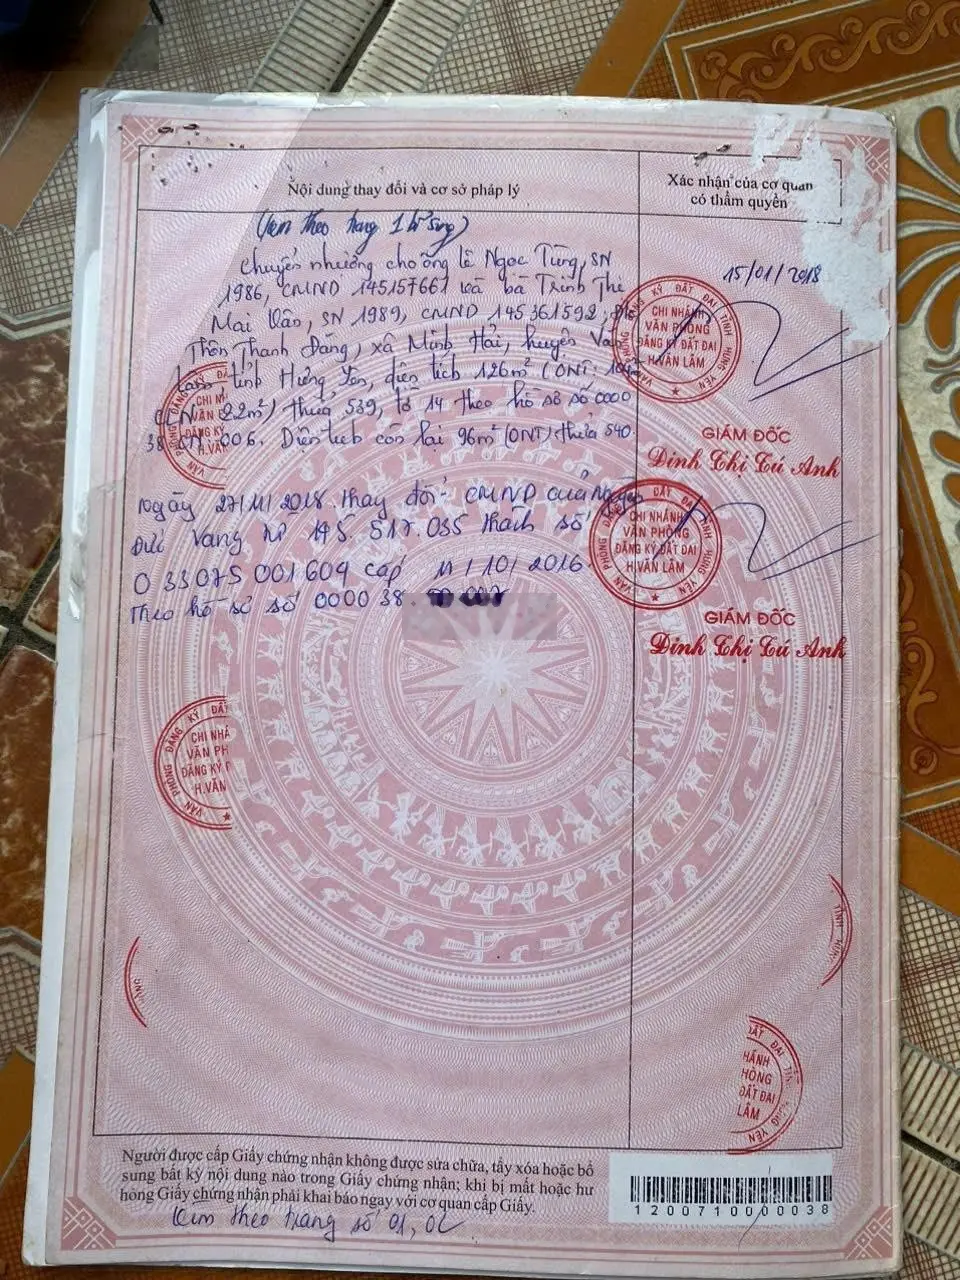 Nội dung thay đổi và cơ sở pháp lý
Xác nhận của cơ quan
có thẩm quyền
(Kèm theo trang 1 bổ sung)
Chuyển nhượng cho ông Lê Ngọc Tùng, SN
1986, CMND 145157661 và bà Trịnh Thị
Mai Vân, SN 1989, CMND 145361592,
Thôn Thanh Đặng, xã Minh Hải, huyện Văn
Lâm, tỉnh Hưng Yên, diện tích 126m² (ONT:
22m²) thửa 539, tờ 14 theo hồ sơ số 0000
38 006. Diện tích còn lại 96m² (ONT) thửa 540.
15/01/2018
VĂN PHÒNG ĐĂNG KÝ ĐẤT ĐAI TỈNH HƯNG YÊN
CHI NHÁNH
VĂN PHÒNG
ĐĂNG KÝ ĐẤT ĐAI
H.VĂN LÂM
GIÁM ĐỐC
Đinh Thị Tú Anh
Ngày 27/11/2018. thay đổi CMND của
Đức Vang từ 145.517.035 thành số
033075001609 cấp 11/10/2016.
Theo hồ sơ số 0000 38
VĂN PHÒNG ĐĂNG KÝ ĐẤT ĐAI TỈNH HƯNG YÊN
CHI NHÁNH
VĂN PHÒNG
ĐĂNG KÝ ĐẤT ĐAI
H.VĂN LÂM
GIÁM ĐỐC
Đinh Thị Tú Anh
VĂN PHÒNG ĐĂNG KÝ ĐẤT
CHI NHÁ
VĂN PH
ĐĂNG KÝ Đ
H.VĂN
TỈNH HƯN
HÁNH
HÒNG
ĐẤT ĐAI
LÂM
Người được cấp Giấy chứng nhận không được sửa chữa, tẩy xóa hoặc bổ
sung bất kỳ nội dung nào trong Giấy chứng nhận; khi bị mất hoặc hư
hỏng Giấy chứng nhận phải khai báo ngay với cơ quan cấp Giấy.
Kèm theo trang số 01, 02
1200710000038